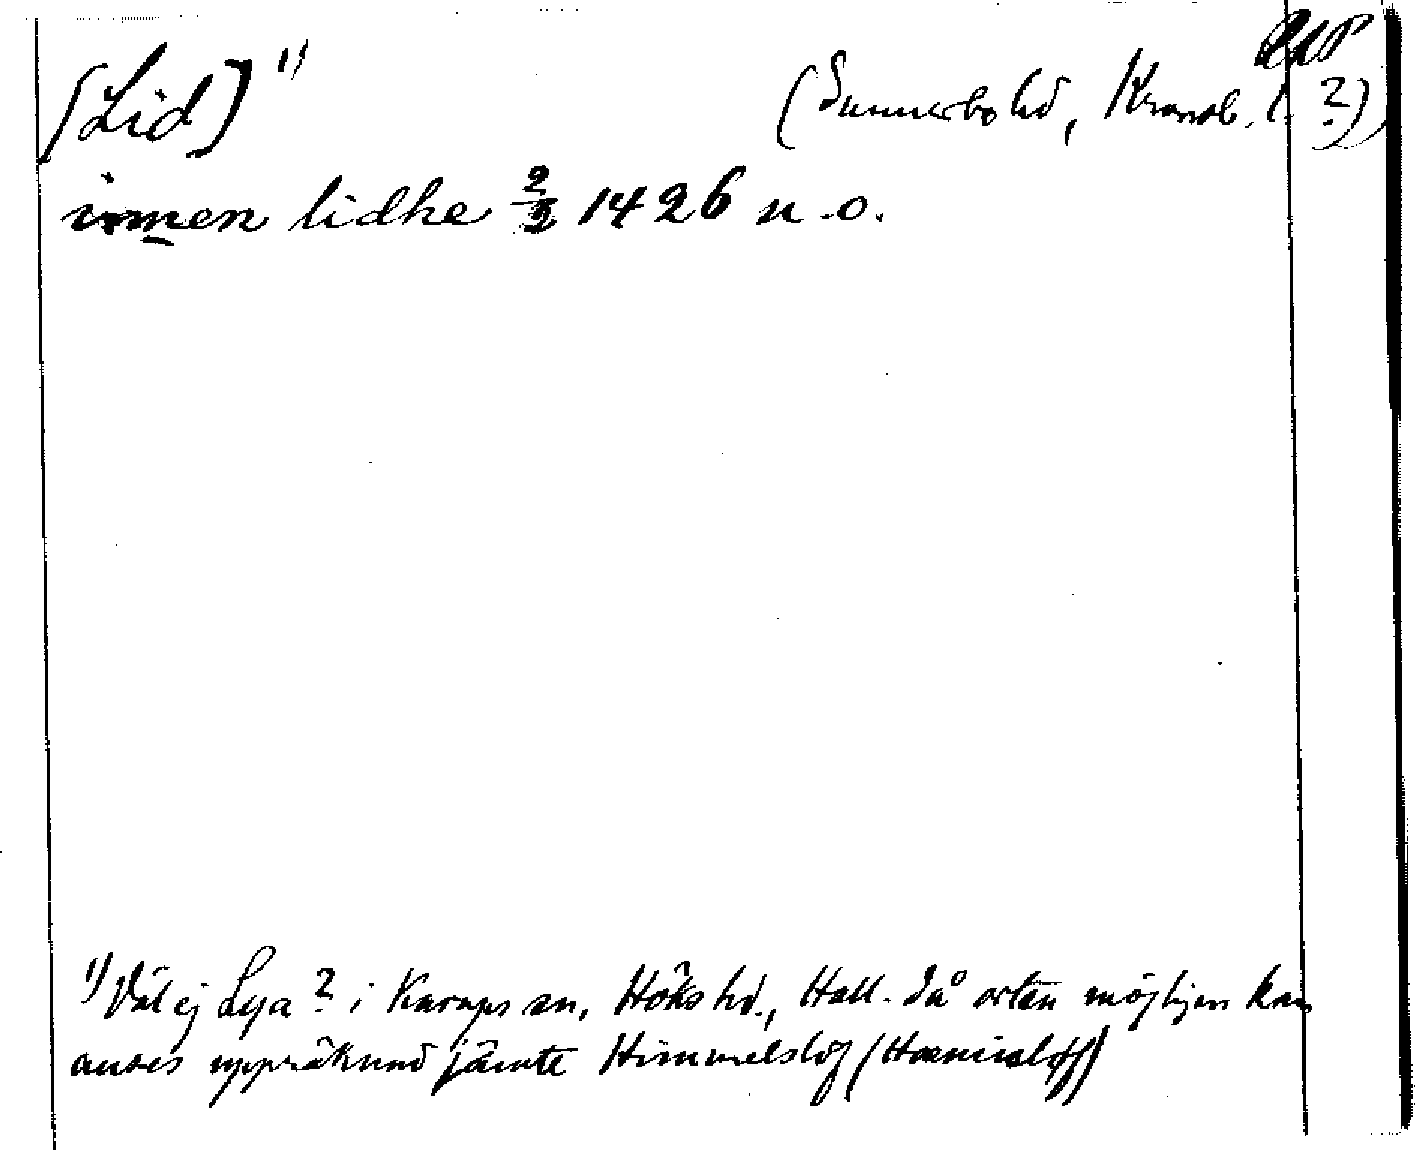 [Lid] 1) (Sunnerbo hd, Kronob. (?))
innen lidhe 2/2 1426 n.o.
1) Väl ej Lya? i Karups sn, Höks hd., Hall. då orten möjligen kan
anses uppräknad jämte Himmelslöf (Hæminslöff)